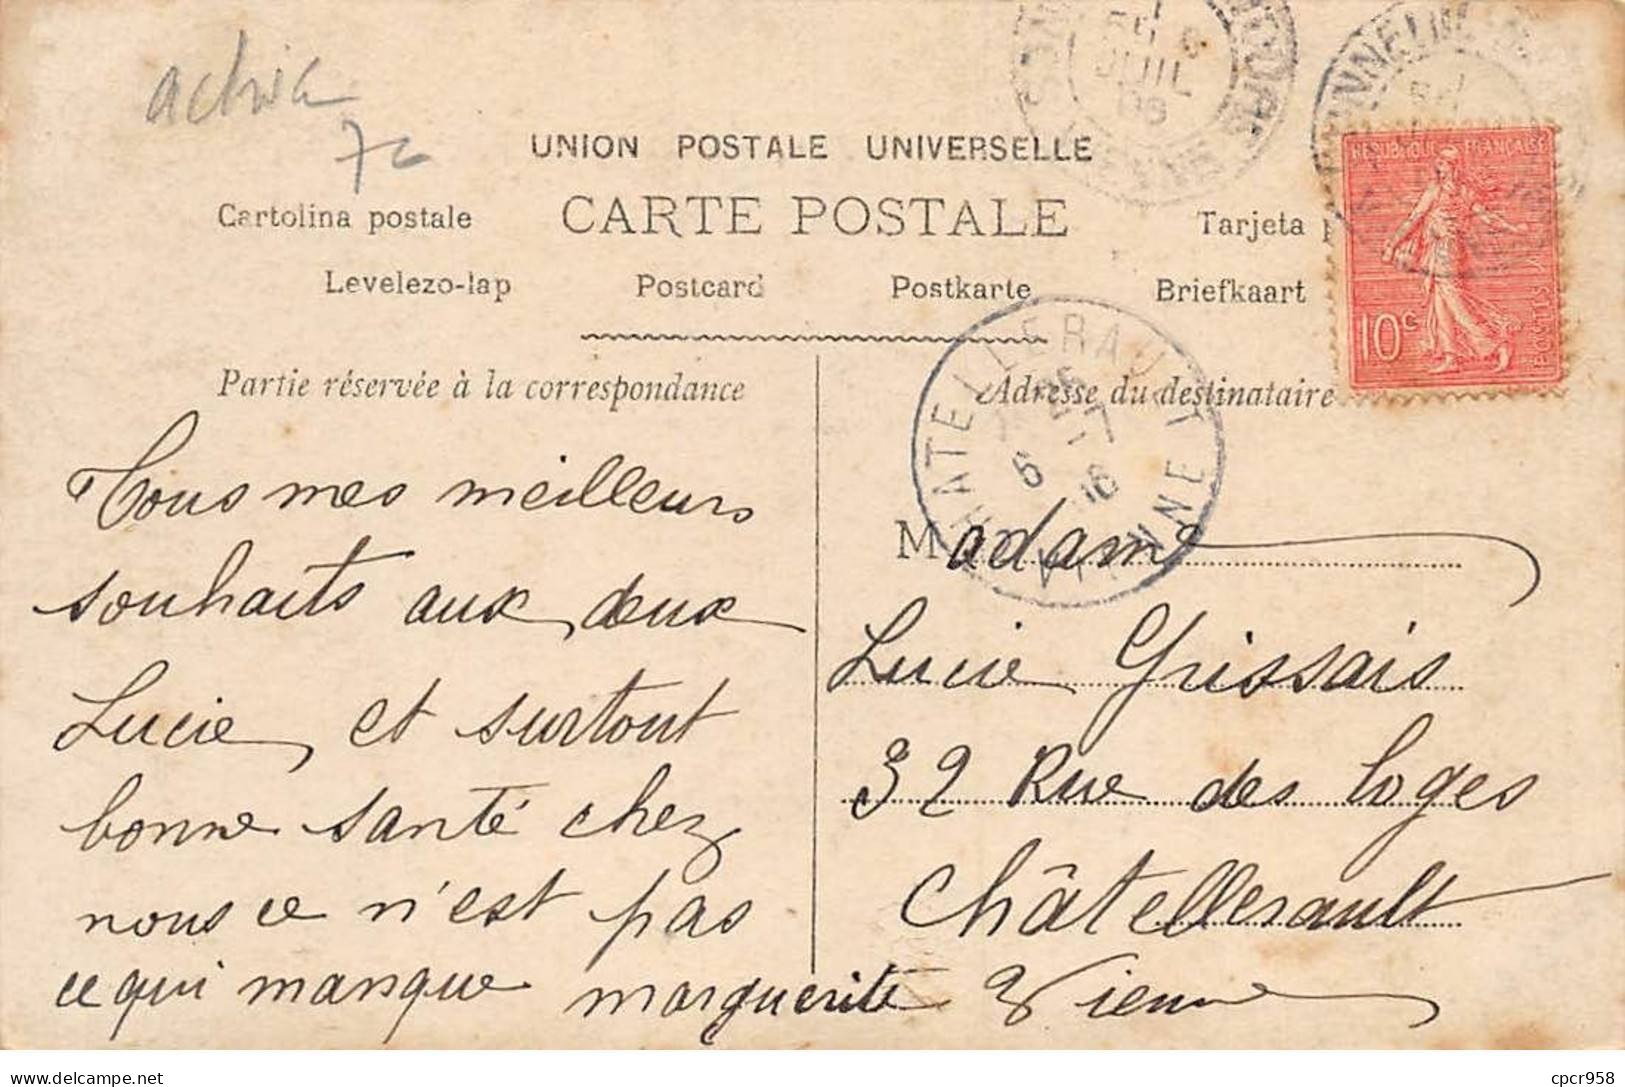 7c
UNION POSTALE UNIVERSELLE
Cartolina postale CARTE POSTALE Tarjeta
Levelezo-lap Postcard Postkarte Briefkaart
REPUBLIQUE FRANÇAISE
10c
POSTES
JUIL
CHATELLERAULT
VIENNE
Partie réservée à la correspondance
Adresse du destinataire
Tous mes meilleurs
souhaits aux deux
Lucie et surtout
bonne santé chez
nous ce n'est pas
ce qui manque marguerite
Madame
Lucie Grissais
32 Rue des loges
Châtellerault
Vienne
delcampe.net
cpcr958